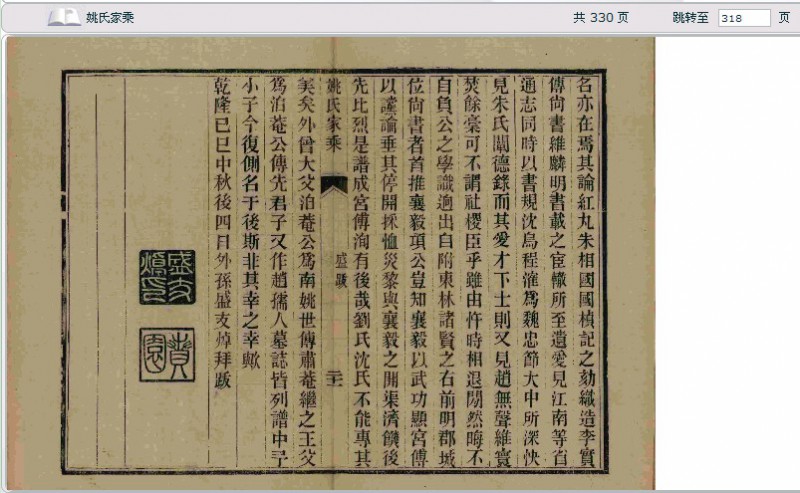 姚氏家乘
共 330 页
跳转至 318 页
名亦在焉其論紅丸朱相國國楨記之劾織造李實
傳尚書維麟明書載之宦轍所至遺愛見江南等省
通志同時以書規沈烏程㴶爲魏忠節大中所深快
見朱氏闡德錄而其愛才下士則又見趙無聲維寰
焚餘稾可不謂社稷臣乎雖由忤時相退閒然晦不
自負公之學識逈出自附東林諸賢之右前明郡城
位尚書者首推襄毅項公豈知襄毅以武功顯宮傅
以讜論垂其停開採恤災黎與襄毅之開渠濟饑後
先比烈是譜成宮傅洵有後哉劉氏沈氏不能專其
姚氏家乘
盛跋
二十
美矣外曾大父泊菴公爲南姚世傳肅菴繼之王父
爲泊菴公傳先君子又作趙孺人墓誌皆列譜中予
小子今復側名于後斯非其幸之幸歟
乾隆己巳中秋後四日外孫盛支焯拜跋
盛支
焯印